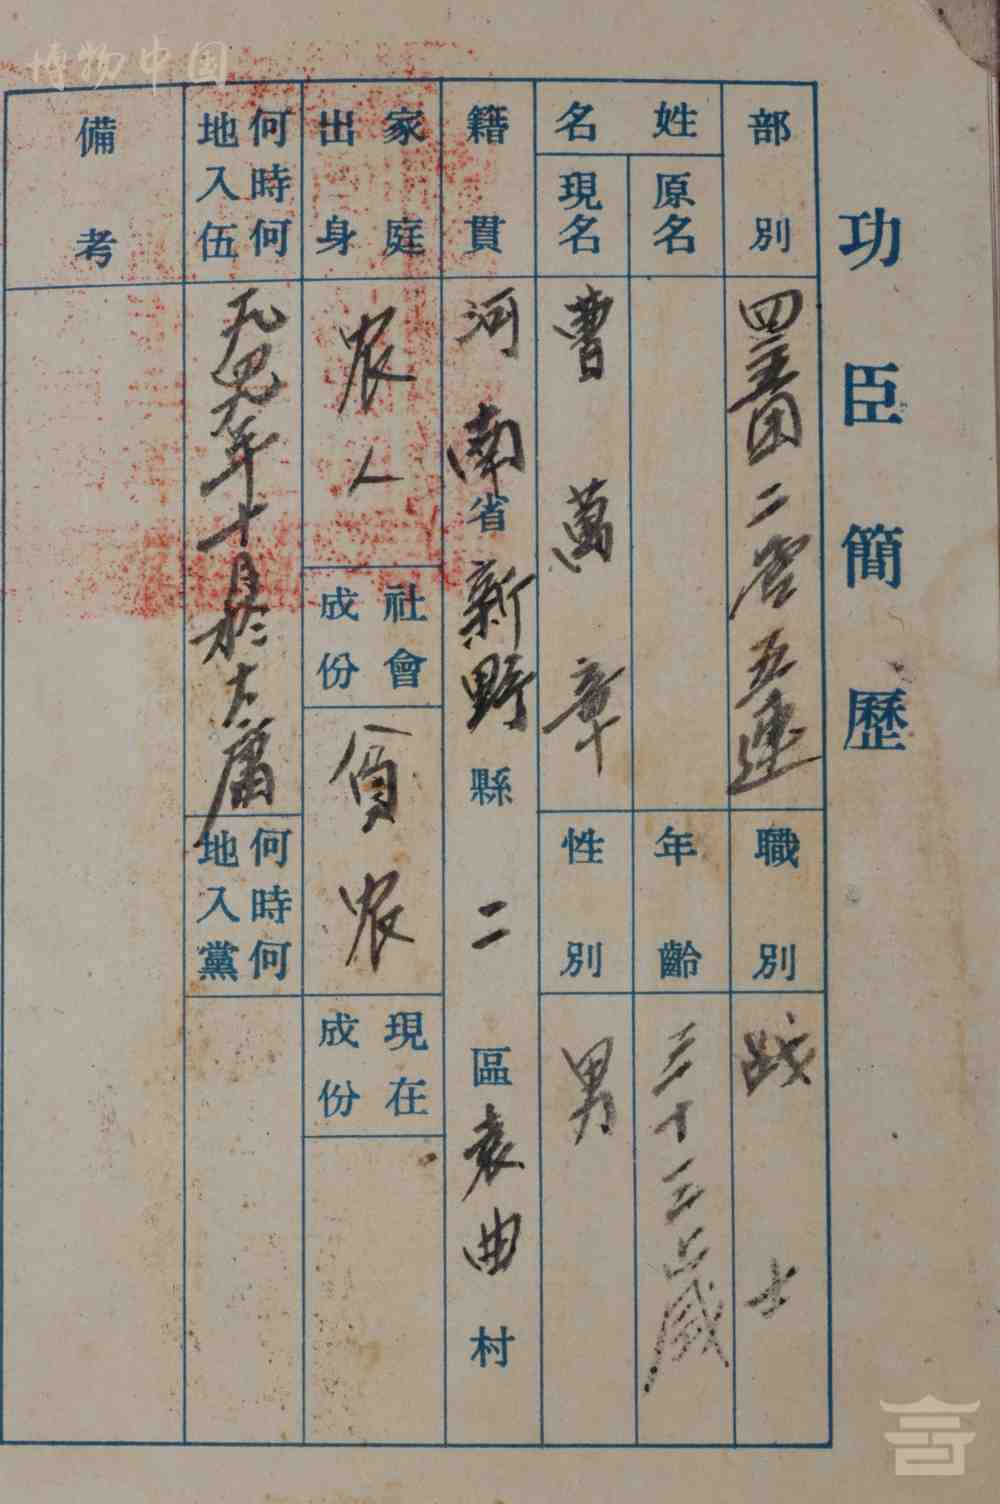 博物中国
功臣簡歷
部別
四三一团二营五連
職別
战士
姓名
原名
年齡
三十三歲
現名
曹萬章
性別
男
籍貫
河南省新野縣二區袁曲村
家庭出身
农人
社會成份
貧农
現在成份
何時何地入伍
一九四九年十月於大庸
何時何地入黨
備考